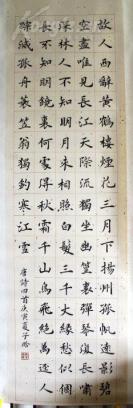 故人西辭黃鶴樓煙花三月下揚州孤帆遠影碧
空盡唯見長江天際流獨坐幽篁裏彈琴復長嘯
深林人不知明月來相照白髮三千丈緣愁似個
長不知明鏡裏何處得秋霜千山鳥飛絕萬逕人
蹤滅孤舟蓑笠翁獨釣寒江雪
唐詩四首庚寅夏子